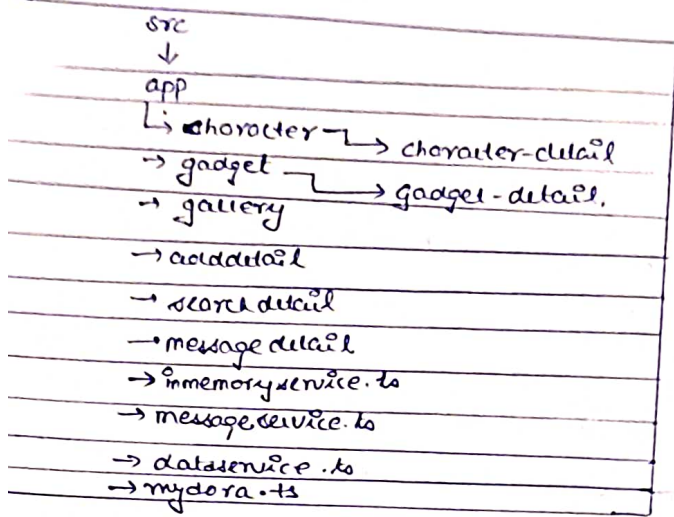 src
↓
app
↳ character → character-detail
→ gadget → gadget-detail.
→ gallery
→ adddetail
→ searchdetail
→ messagedetail
→ inmemoryservice.ts
→ messageservice.ts
→ dataservice.ts
→ mydora.ts